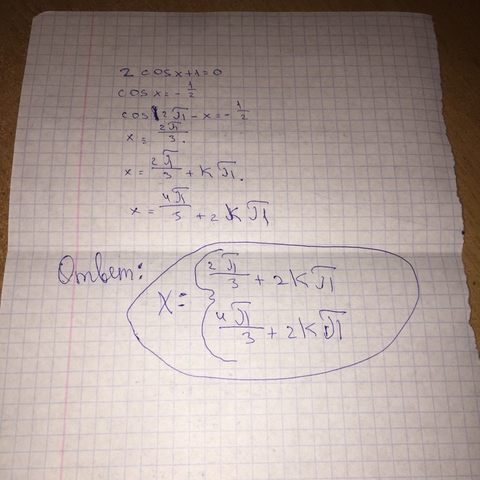 2 cosx+1=0
cosx=-1/2
cos 2π-x=-1/2
x=2π/3.
x=2π/3+Kπ.
x=4π/3+2Kπ
Ответ: x={2π/3+2Kπ
4π/3+2Kπ